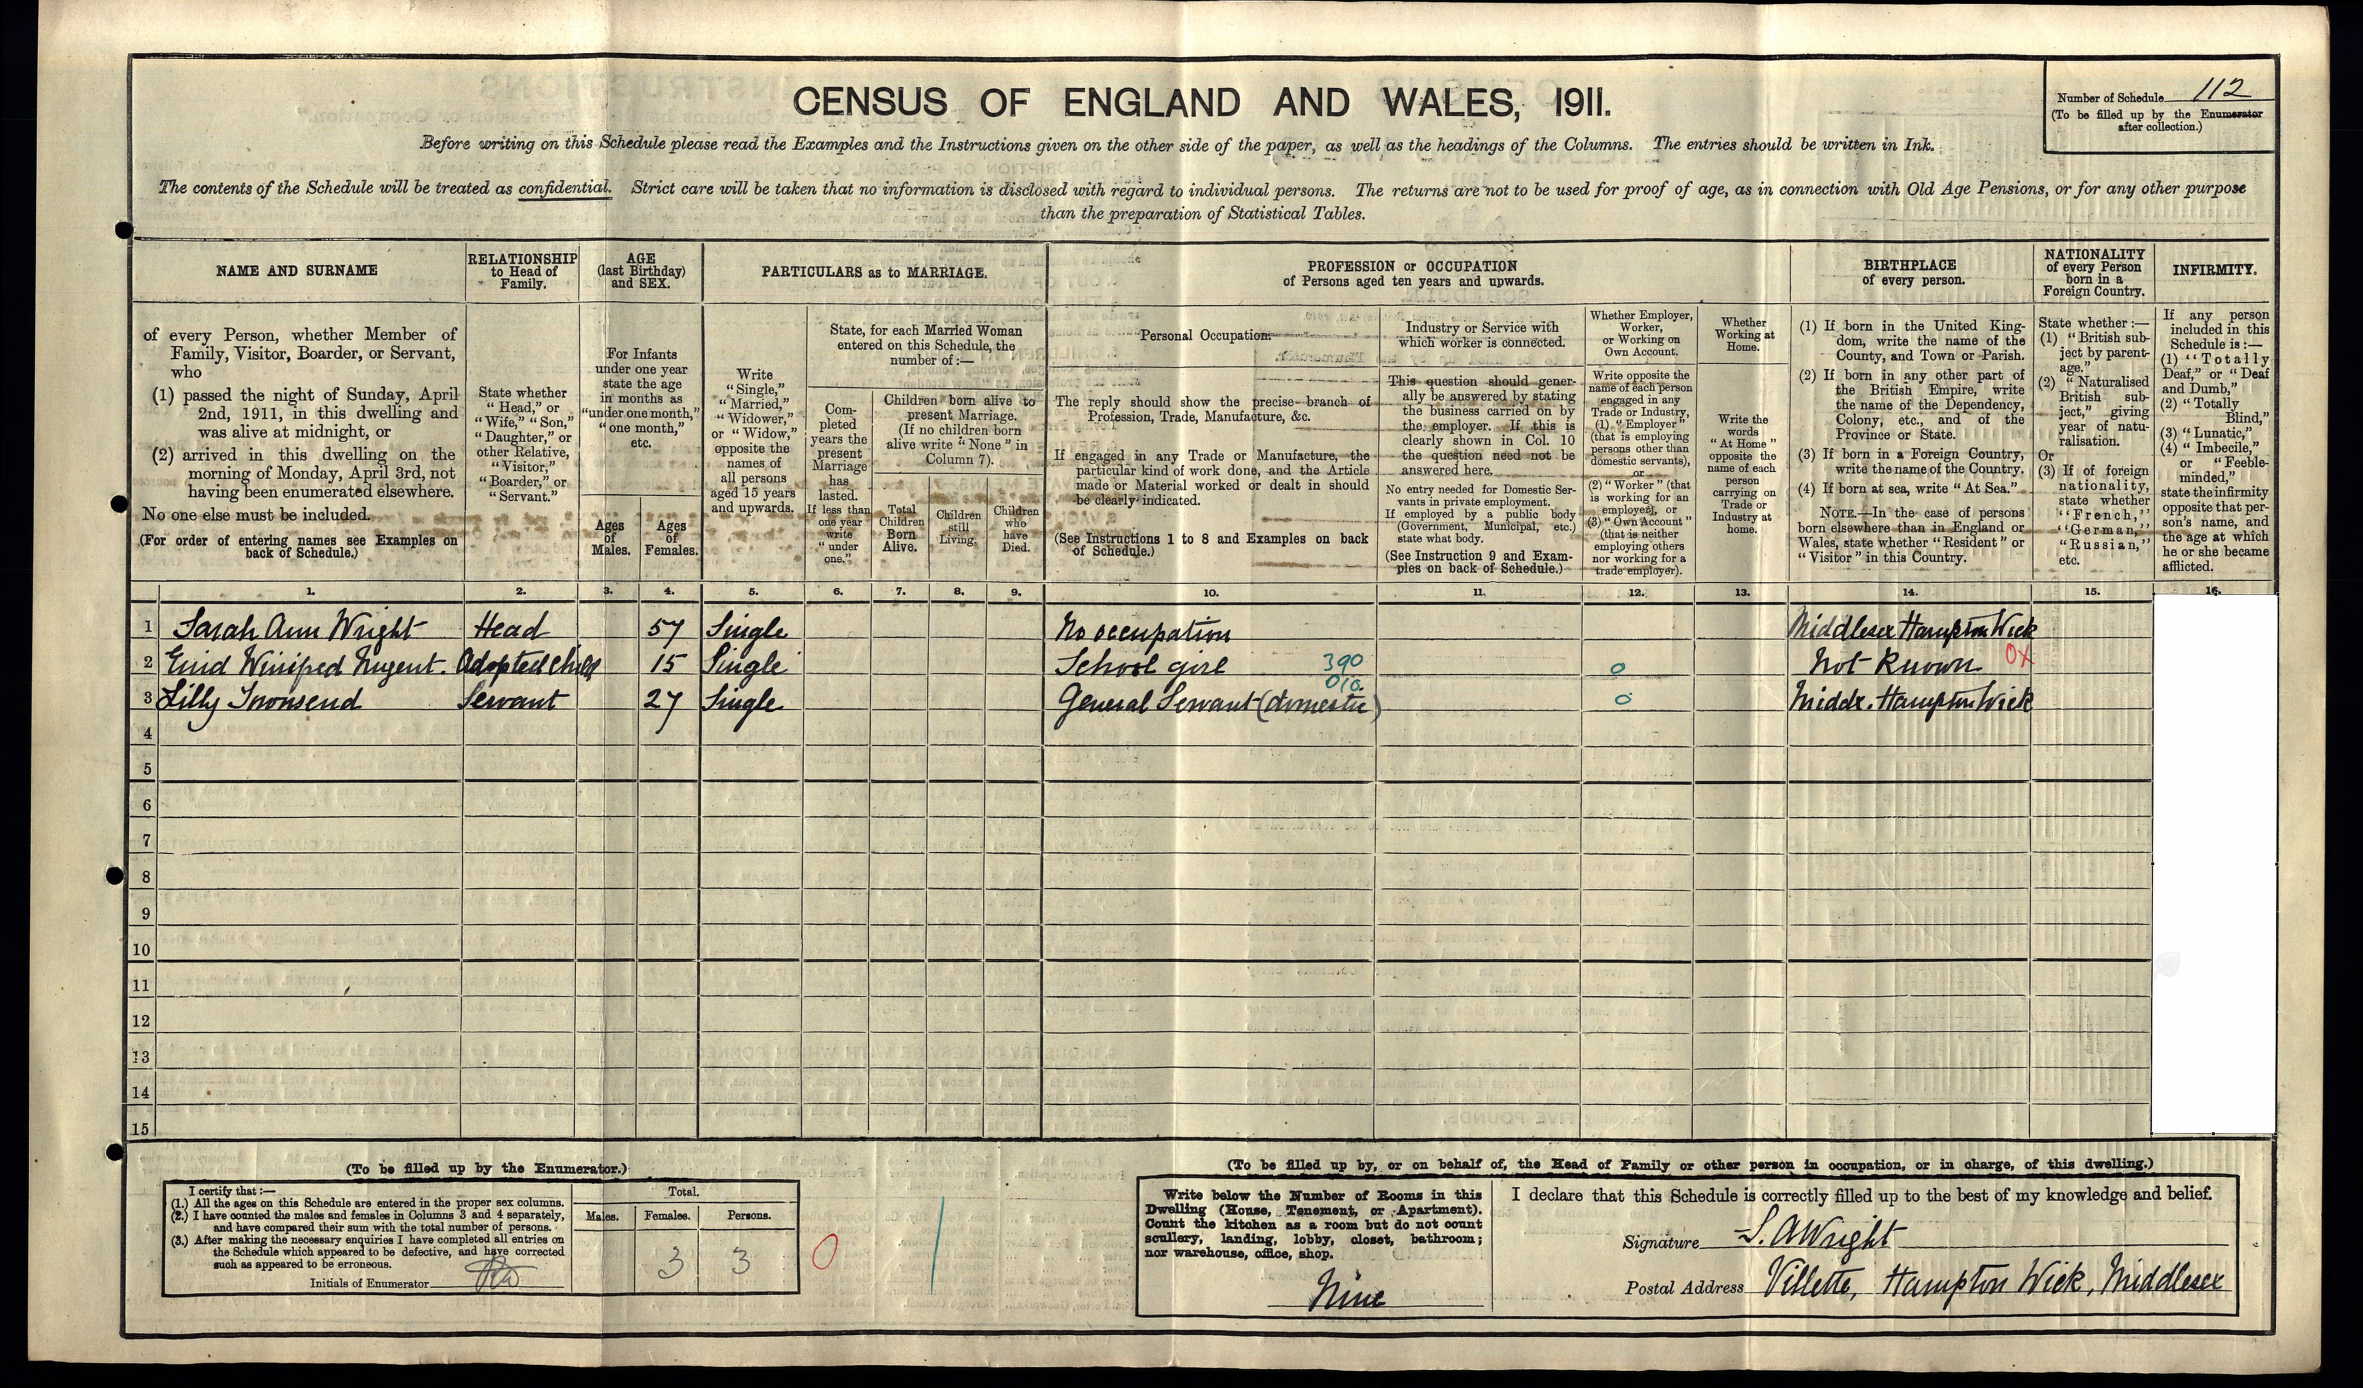 CENSUS OF ENGLAND AND WALES, 1911.
Number of Schedule 112
(To be filled up by the Enumerator
after collection.)
Before writing on this Schedule please read the Examples and the Instructions given on the other side of the paper, as well as the headings of the Columns. The entries should be written in Ink.
The contents of the Schedule will be treated as confidential. Strict care will be taken that no information is disclosed with regard to individual persons. The returns are not to be used for proof of age, as in connection with Old Age Pensions, or for any other purpose
than the preparation of Statistical Tables.
NAME AND SURNAME
of every Person, whether Member of
Family, Visitor, Boarder, or Servant,
who
(1) passed the night of Sunday, April
2nd, 1911, in this dwelling and
was alive at midnight, or
(2) arrived in this dwelling on the
morning of Monday, April 3rd, not
having been enumerated elsewhere.
No one else must be included.
(For order of entering names see Examples on
back of Schedule.)
RELATIONSHIP
to Head of
Family.
State whether
"Head," or
"Wife," "Son,"
"Daughter," or
other Relative,
"Visitor,"
"Boarder," or
"Servant."
AGE
(last Birthday)
and SEX.
For Infants
under one year
state the age
in months as
"under one month,"
"one month,"
etc.
Ages
of
Males.
Ages
of
Females.
PARTICULARS as to MARRIAGE.
Write
"Single,"
"Married,"
"Widower,"
or "Widow,"
opposite the
names of
all persons
aged 15 years
and upwards.
State, for each Married Woman
entered on this Schedule, the
number of :—
Com-
pleted
years the
present
Marriage
has
lasted.
If less than
one year
write
"under
one."
Children born alive to
present Marriage.
(If no children born
alive write "None" in
Column 7).
Total
Children
Born
Alive.
Children
still
Living.
Children
who
have
Died.
PROFESSION or OCCUPATION
of Persons aged ten years and upwards.
Personal Occupation.
The reply should show the precise branch of
Profession, Trade, Manufacture, &c.
If engaged in any Trade or Manufacture, the
particular kind of work done, and the Article
made or Material worked or dealt in should
be clearly indicated.
(See Instructions 1 to 8 and Examples on back
of Schedule.)
Industry or Service with
which worker is connected.
This question should gener-
ally be answered by stating
the business carried on by
the employer. If this is
clearly shown in Col. 10
the question need not be
answered here.
No entry needed for Domestic Ser-
vants in private employment.
If employed by a public body
(Government, Municipal, etc.)
state what body.
(See Instruction 9 and Exam-
ples on back of Schedule.)
Whether Employer,
Worker,
or Working on
Own Account.
Write opposite the
name of each person
engaged in any
Trade or Industry,
(1) "Employer"
(that is employing
persons other than
domestic servants),
or
(2) "Worker" (that
is working for an
employer), or
(3) "Own Account"
(that is neither
employing others
nor working for a
trade employer).
Whether
Working at
Home.
Write the
words
"At Home"
opposite the
name of each
person
carrying on
Trade or
Industry at
home.
BIRTHPLACE
of every person.
(1) If born in the United King-
dom, write the name of the
County, and Town or Parish.
(2) If born in any other part of
the British Empire, write
the name of the Dependency,
Colony, etc., and of the
Province or State.
(3) If born in a Foreign Country,
write the name of the Country.
(4) If born at sea, write "At Sea."
NOTE.—In the case of persons
born elsewhere than in England or
Wales, state whether "Resident" or
"Visitor" in this Country.
NATIONALITY
of every Person
born in a
Foreign Country.
State whether :—
(1) "British sub-
ject by parent-
age."
(2) "Naturalised
British sub-
ject," giving
year of natu-
ralisation.
Or
(3) If of foreign
nationality,
state whether
"French,"
"German,"
"Russian,"
etc.
INFIRMITY.
If any person
included in this
Schedule is :—
(1) "Totally
Deaf," or "Deaf
and Dumb,"
(2) "Totally
Blind,"
(3) "Lunatic,"
(4) "Imbecile,"
or "Feeble-
minded,"
state the infirmity
opposite that per-
son's name, and
the age at which
he or she became
afflicted.
1. 2. 3. 4. 5. 6. 7. 8. 9. 10. 11. 12. 13. 14. 15. 16.
1 Sarah Ann Wright Head 57 Single No occupation Middlesex Hampton Wick
2 Enid Winifred Nugent. Adopted child 15 Single School girl 390 0 Not Known OX
3 Lilly Townsend Servant 27 Single General Servant (domestic) 010. 0 Middx. Hampton Wick
4
5
6
7
8
9
10
11
12
13
14
15
(To be filled up by the Enumerator.)
I certify that :—
(1.) All the ages on this Schedule are entered in the proper sex columns.
(2.) I have counted the males and females in Columns 3 and 4 separately,
and have compared their sum with the total number of persons.
(3.) After making the necessary enquiries I have completed all entries on
the Schedule which appeared to be defective, and have corrected
such as appeared to be erroneous.
Initials of Enumerator
Total.
Males. Females. Persons.
3 3
0
(To be filled up by, or on behalf of, the Head of Family or other person in occupation, or in charge, of this dwelling.)
Write below the Number of Rooms in this
Dwelling (House, Tenement, or Apartment).
Count the kitchen as a room but do not count
scullery, landing, lobby, closet, bathroom;
nor warehouse, office, shop.
Nine
I declare that this Schedule is correctly filled up to the best of my knowledge and belief.
Signature S. A Wright
Postal Address Villette, Hampton Wick, Middlesex